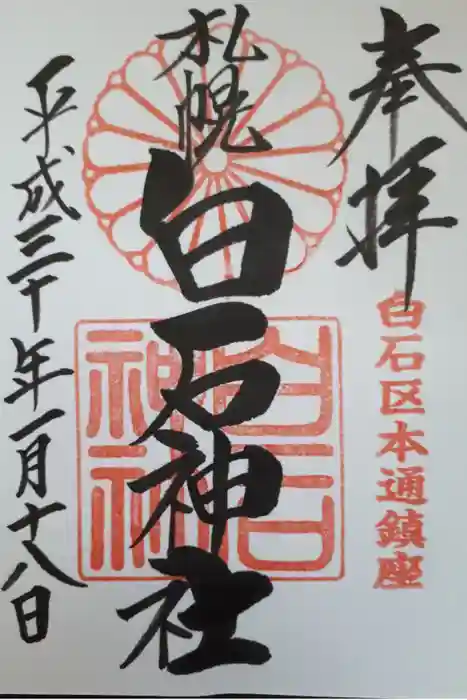 奉拝
白石区本通鎮座
札幌
白石神社
白石神社
平成三十年一月十八日